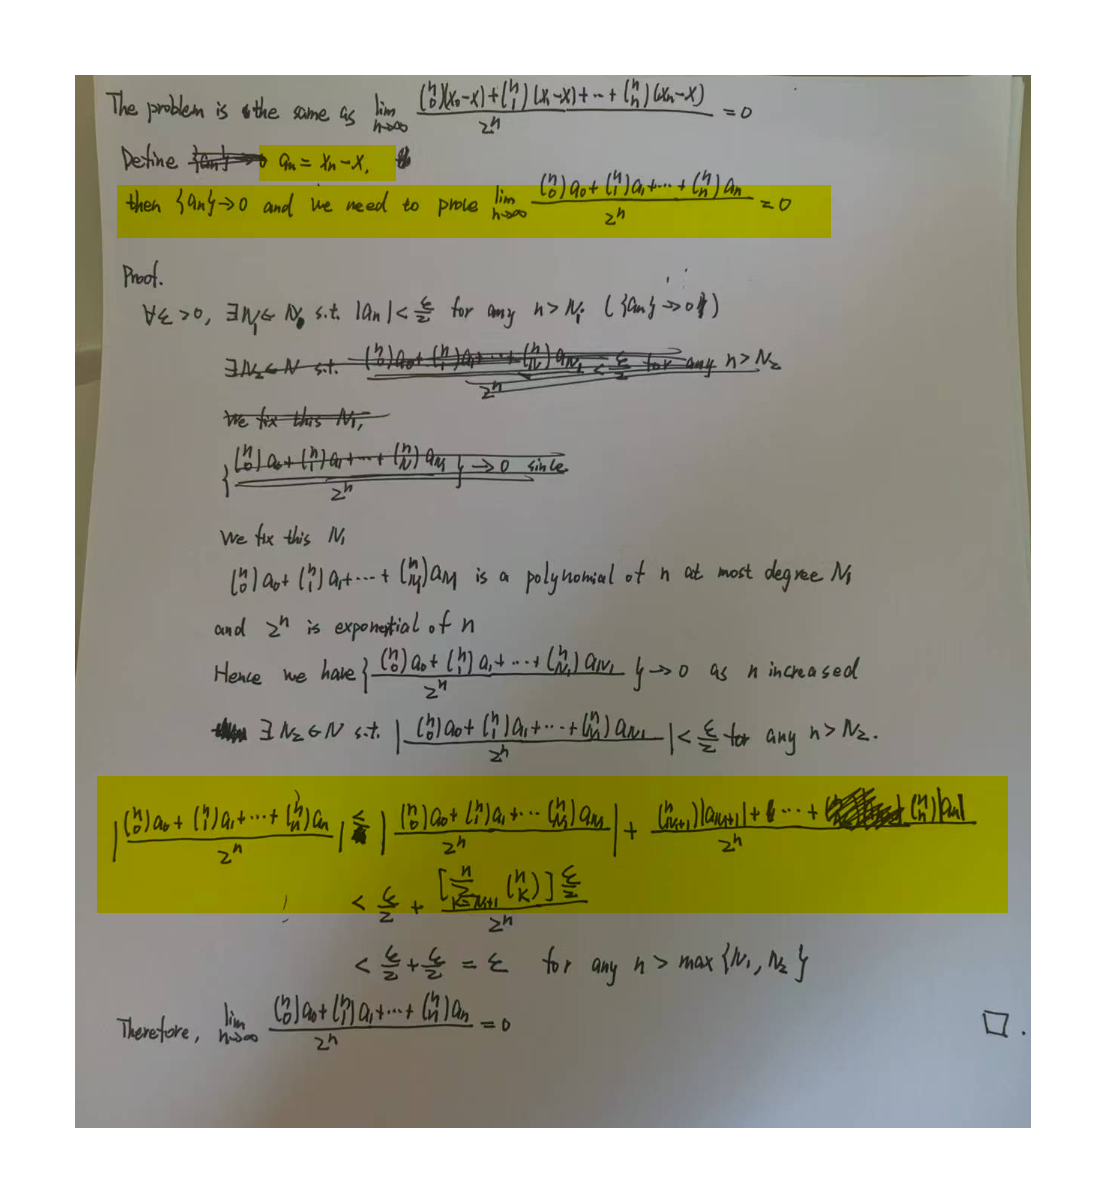 The problem is the same as lim_{n→∞} \frac{\binom{n}{0}(x_0-x)+\binom{n}{1}(x_1-x)+\cdots+\binom{n}{n}(x_n-x)}{2^n} = 0
Define a_n = x_n - x,
then {a_n}→0 and we need to prove lim_{n→∞} \frac{\binom{n}{0}a_0+\binom{n}{1}a_1+\cdots+\binom{n}{n}a_n}{2^n} = 0
Proof.
∀ε>0, ∃N_1∈N, s.t. |a_n|<\frac{ε}{2} for any n>N_1 ({a_n}→0)
∃N_2∈N s.t. \frac{\binom{n}{0}a_0+\binom{n}{1}a_1+\cdots+\binom{n}{N_1}a_{N_1}}{2^n} < \frac{ε}{2} for any n>N_2
We fix this N_1,
{\frac{\binom{n}{0}a_0+\binom{n}{1}a_1+\cdots+\binom{n}{N_1}a_{N_1}}{2^n}}→0 since
We fix this N_1
\binom{n}{0}a_0+\binom{n}{1}a_1+\cdots+\binom{n}{N_1}a_{N_1} is a polynomial of n at most degree N_1
and 2^n is exponential of n
Hence we have {\frac{\binom{n}{0}a_0+\binom{n}{1}a_1+\cdots+\binom{n}{N_1}a_{N_1}}{2^n}}→0 as n increased
∃N_2∈N s.t. |\frac{\binom{n}{0}a_0+\binom{n}{1}a_1+\cdots+\binom{n}{N_1}a_{N_1}}{2^n}|<\frac{ε}{2} for any n>N_2.
|\frac{\binom{n}{0}a_0+\binom{n}{1}a_1+\cdots+\binom{n}{n}a_n}{2^n}| ≤ |\frac{\binom{n}{0}a_0+\binom{n}{1}a_1+\cdots\binom{n}{N_1}a_{N_1}}{2^n}| + \frac{\binom{n}{N_1+1}|a_{N_1+1}|+\cdots+\binom{n}{n}|a_n|}{2^n}
< \frac{ε}{2} + \frac{[\sum_{k=N_1+1}^{n}\binom{n}{k}]\frac{ε}{2}}{2^n}
< \frac{ε}{2}+\frac{ε}{2} = ε for any n>max{N_1,N_2}
Therefore, lim_{n→∞} \frac{\binom{n}{0}a_0+\binom{n}{1}a_1+\cdots+\binom{n}{n}a_n}{2^n} = 0 □.